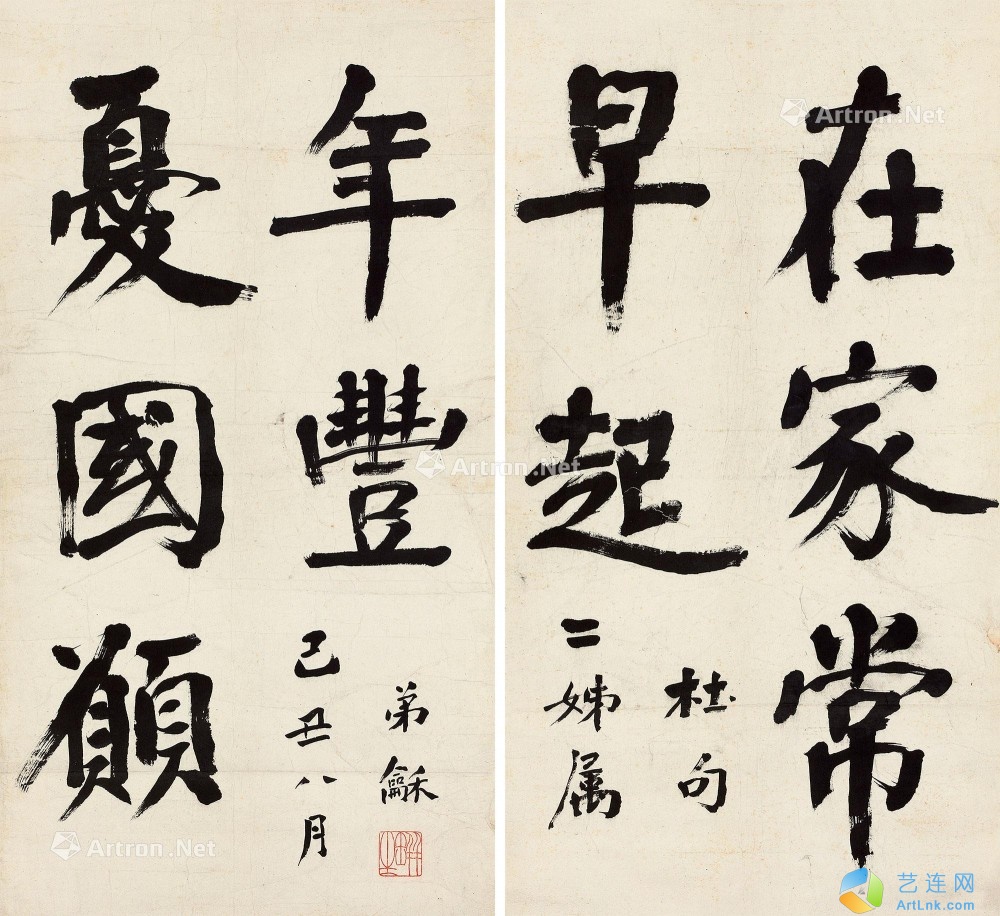 在家常
早起
杜句
二姊属
憂國願
年豐
己丑八月
弟龢
Artron.Net
Artron.Net
Artron.Net
Artron.Net
Artron.Net
艺连网
ArtLnk.com